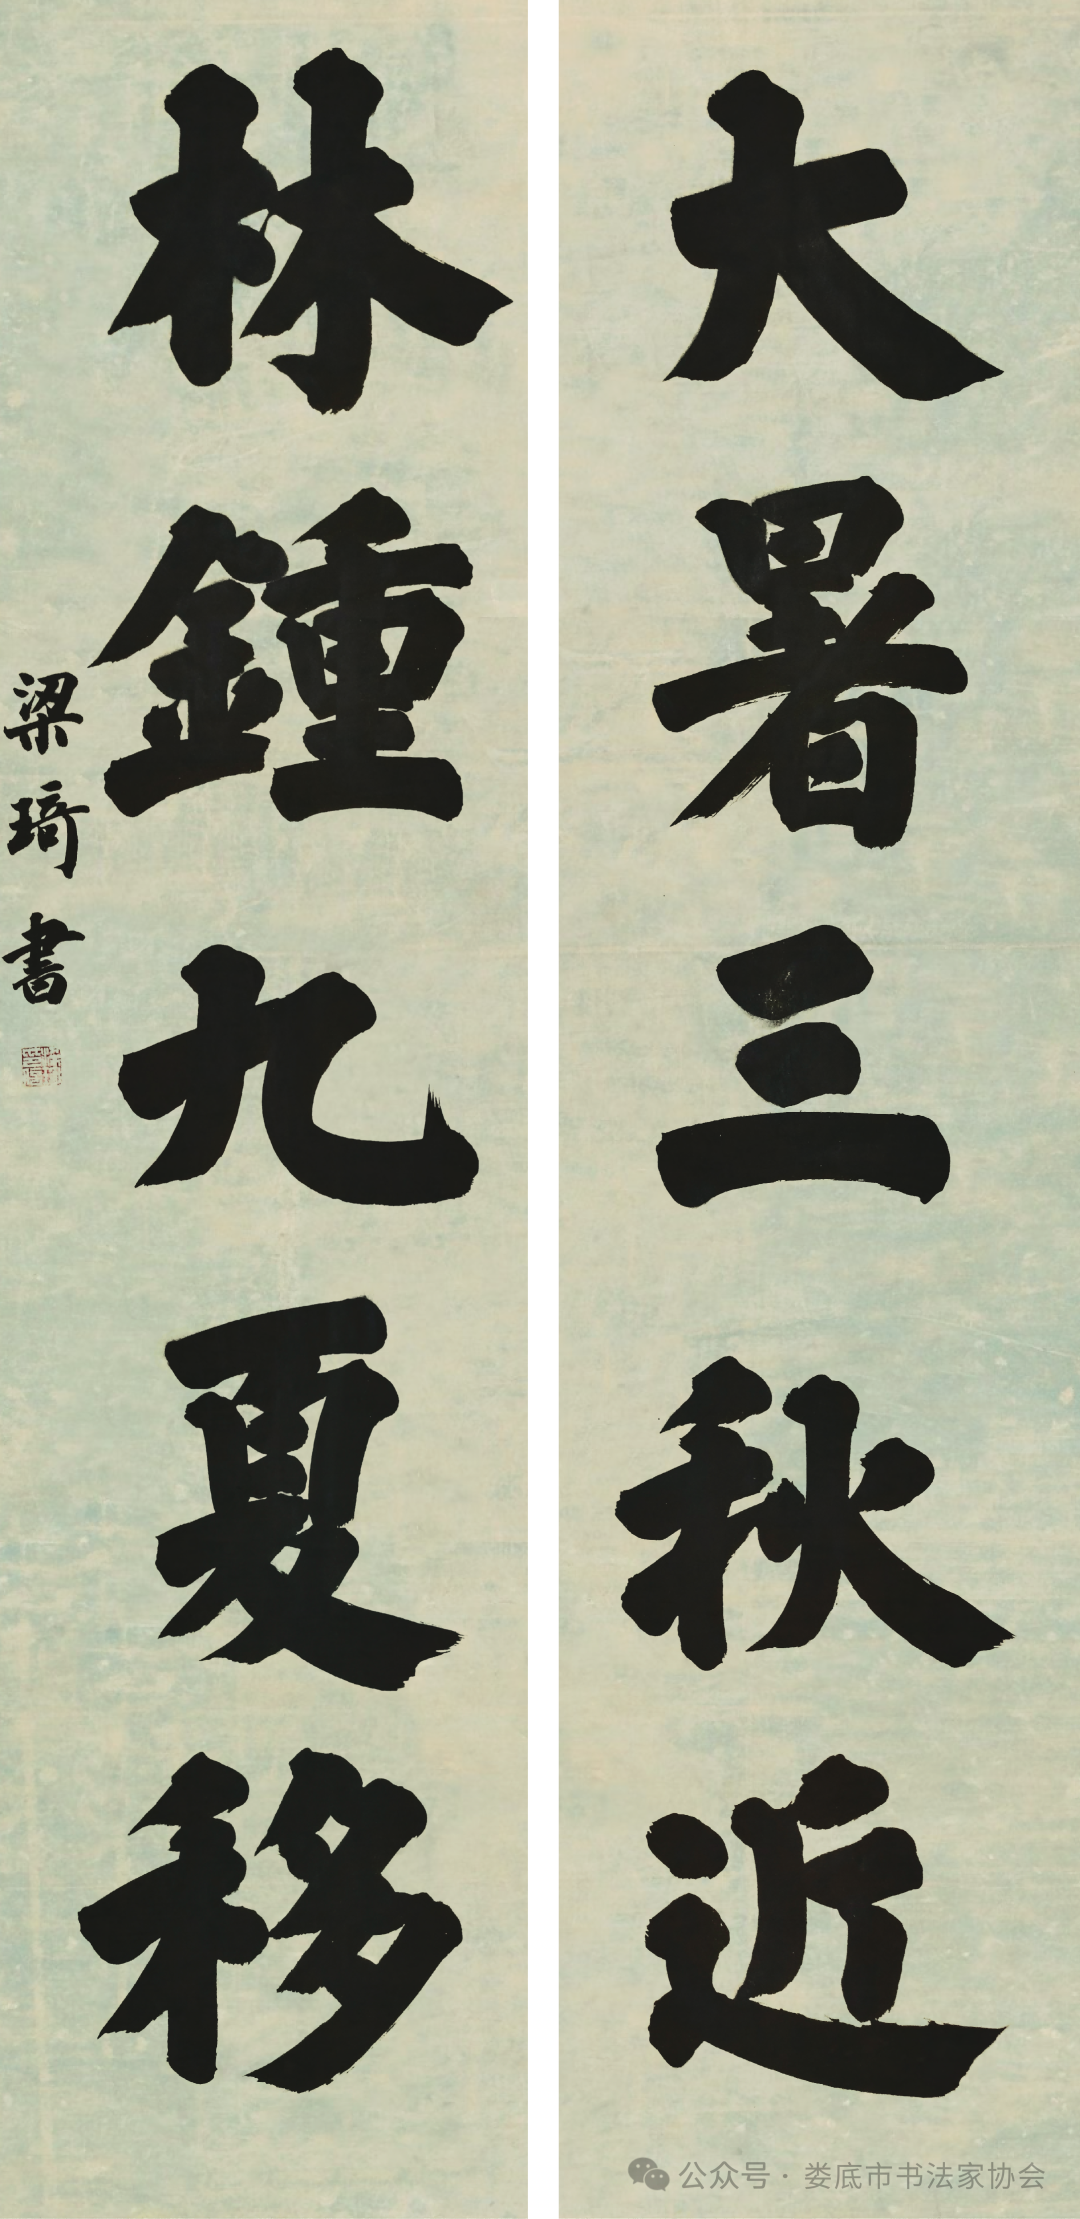 大暑三秋近
林鍾九夏移
梁琦書
公众号·娄底市书法家协会